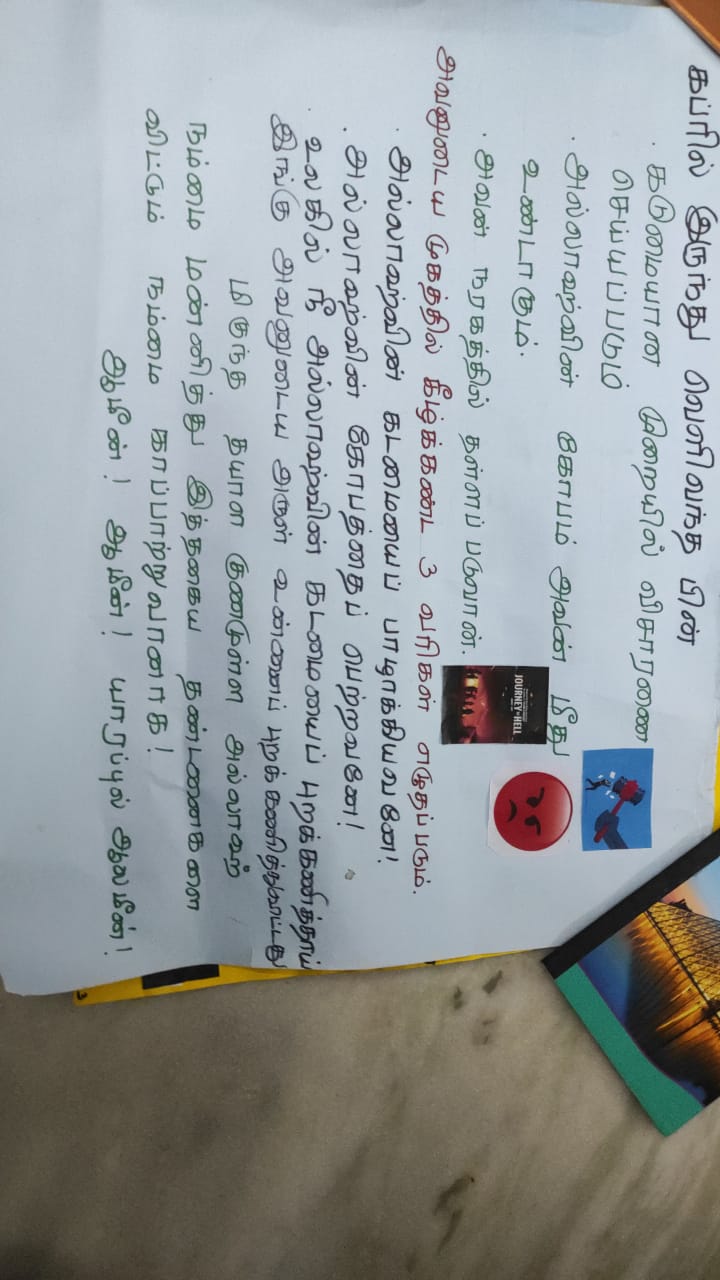 கப்ரில் இருந்து வெளிவந்த பின்
. கடுமையான முறையில் விசாரணை
செய்யப்படும்
. அல்லாஹ்வின் கோபம் அவண் மீது
உண்டாகும்.
. அவன் நரகத்தில் தள்ளப் படுவான்.
JOURNEY to HELL
அவனுடைய முகத்தில் கீழ்க்கண்ட 3 வரிகள் எழுதப்படும்.
. அல்லாஹ்வின் கடமையைப் பாழாக்கியவனே!
. அல்லாஹ்வின் கோபத்தைப் பெற்றவனே!
. உலகில் நீ அல்லாஹ்வின் கடமையைப் புறக்கணித்தாய்
இங்கு அவனுடைய அருள் உன்னைப் புறக்கணித்துவிட்டது
மிகுந்த தயாள குணமுள்ள அல்லாஹ்
நம்மை மன்னித்து இத்தகைய தண்டனைகளை
விட்டும் நம்மை காப்பாற்றுவானாக!
ஆமீன்! ஆமீன்! யாரப்புல் ஆலமீன்!